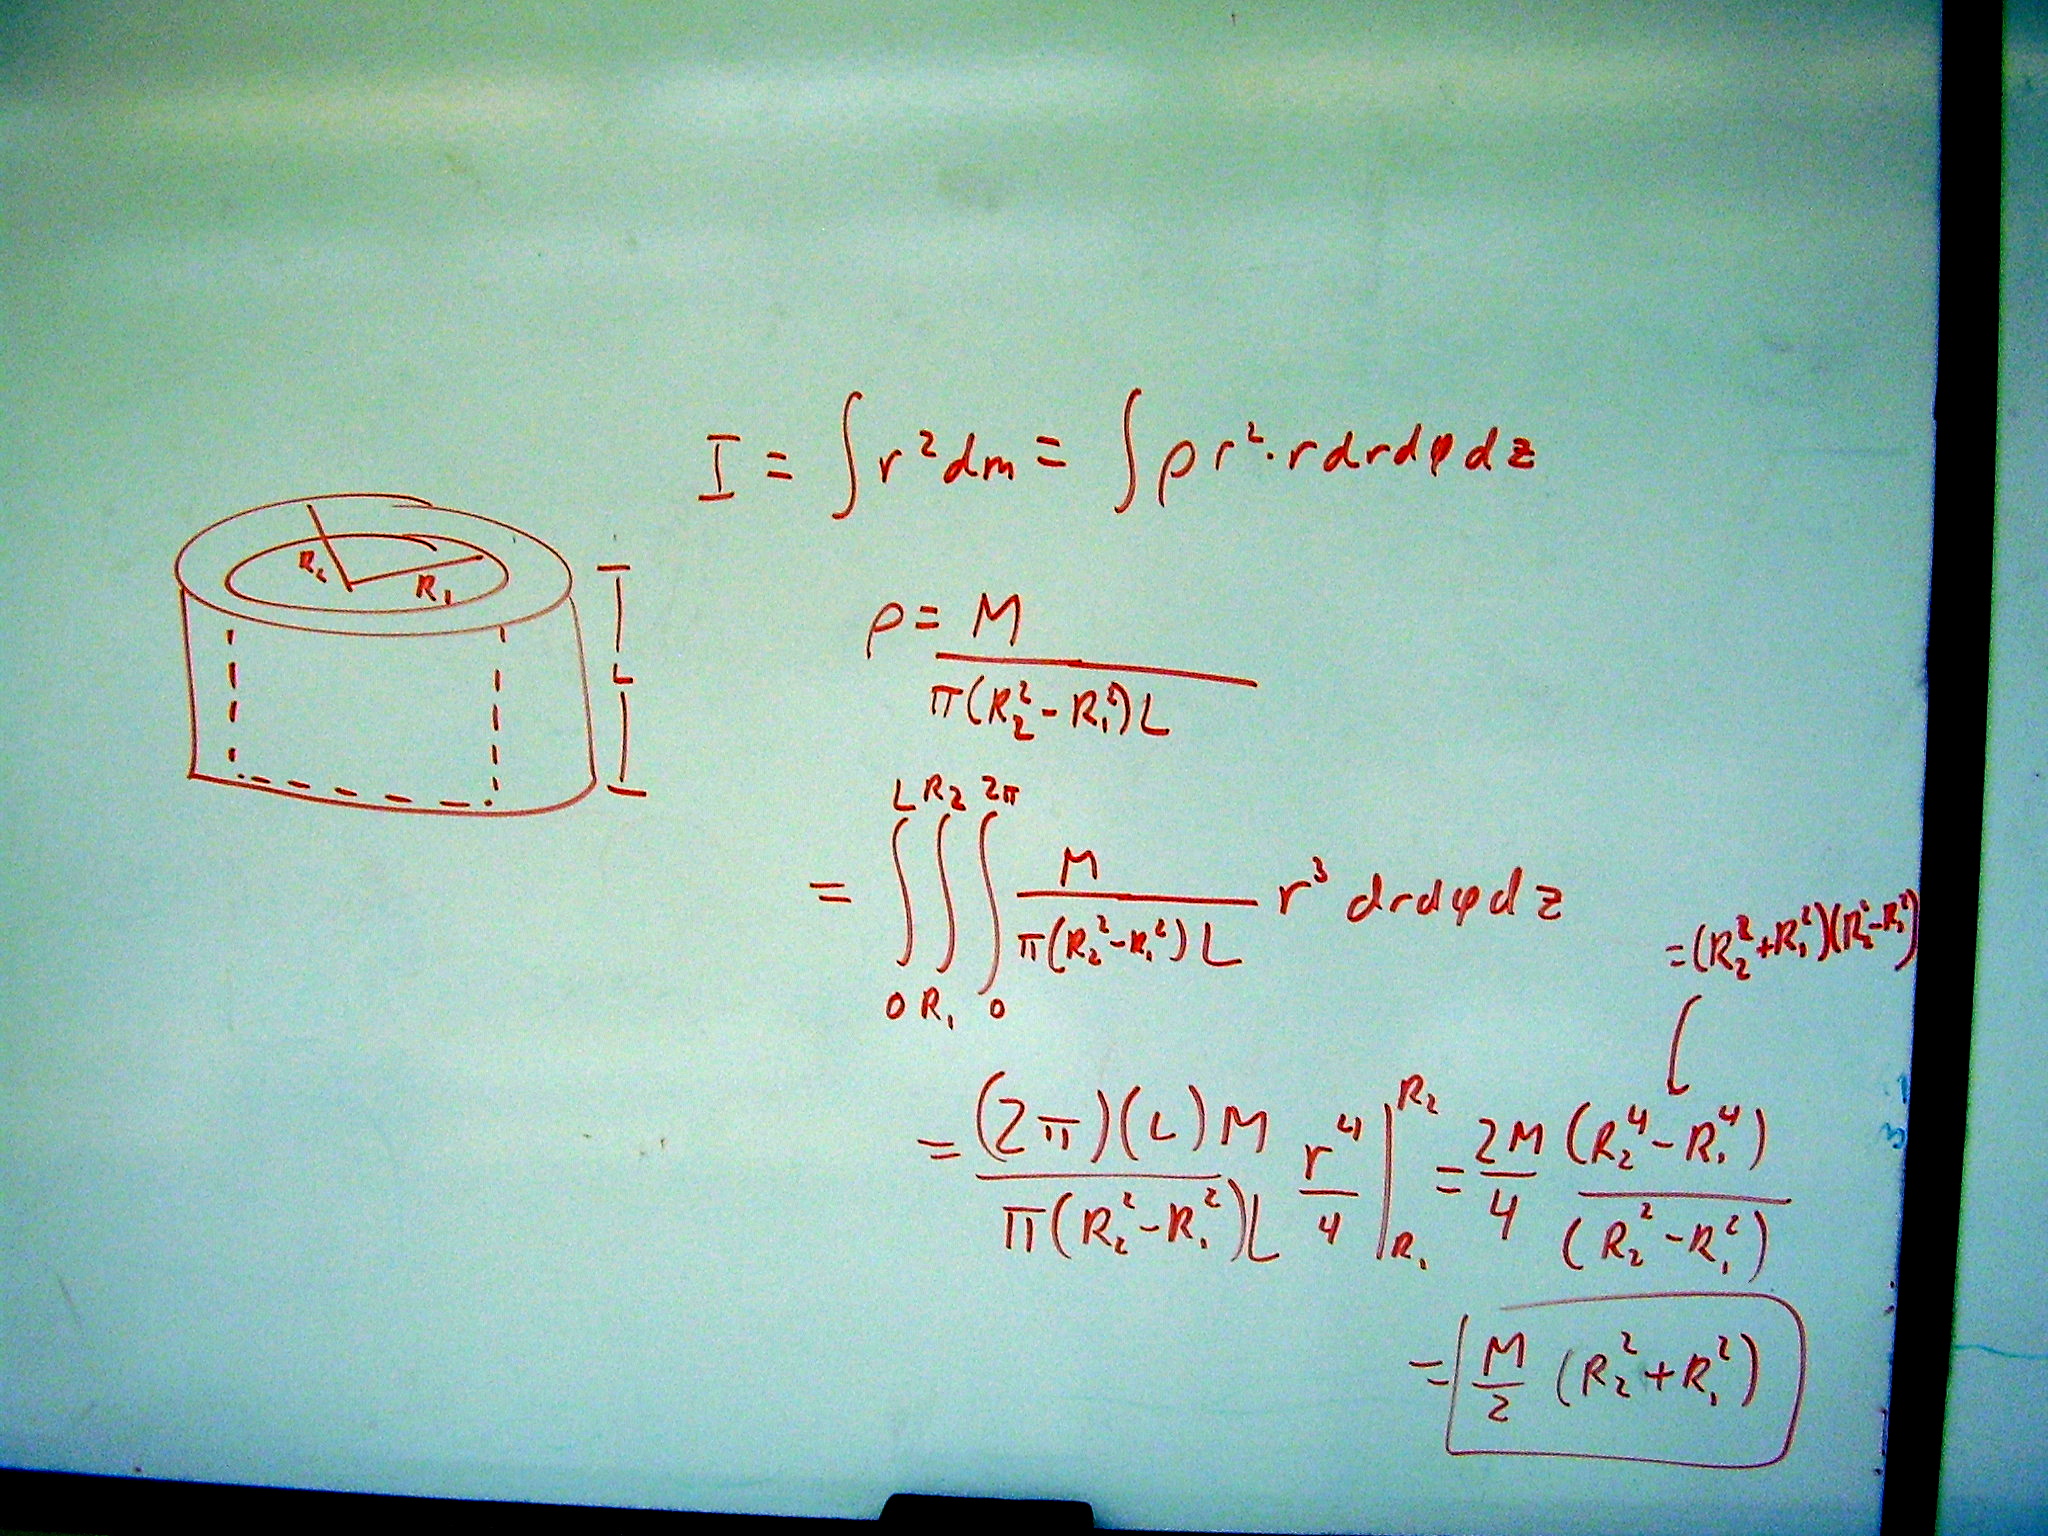 I = ∫ r² dm = ∫ ρ r² · r dr dφ dz
R₂ R₁
L
ρ = M / π(R₂² - R₁²) L
= ∫₀^L ∫_R₁^R₂ ∫₀^2π M / π(R₂² - R₁²) L r³ dr dφ dz
= (R₂² + R₁²)(R₂² - R₁²)
= (2π)(L) M / π(R₂² - R₁²) L r⁴/4 |_R₁^R₂ = 2M/4 (R₂⁴ - R₁⁴) / (R₂² - R₁²)
= M/2 (R₂² + R₁²)